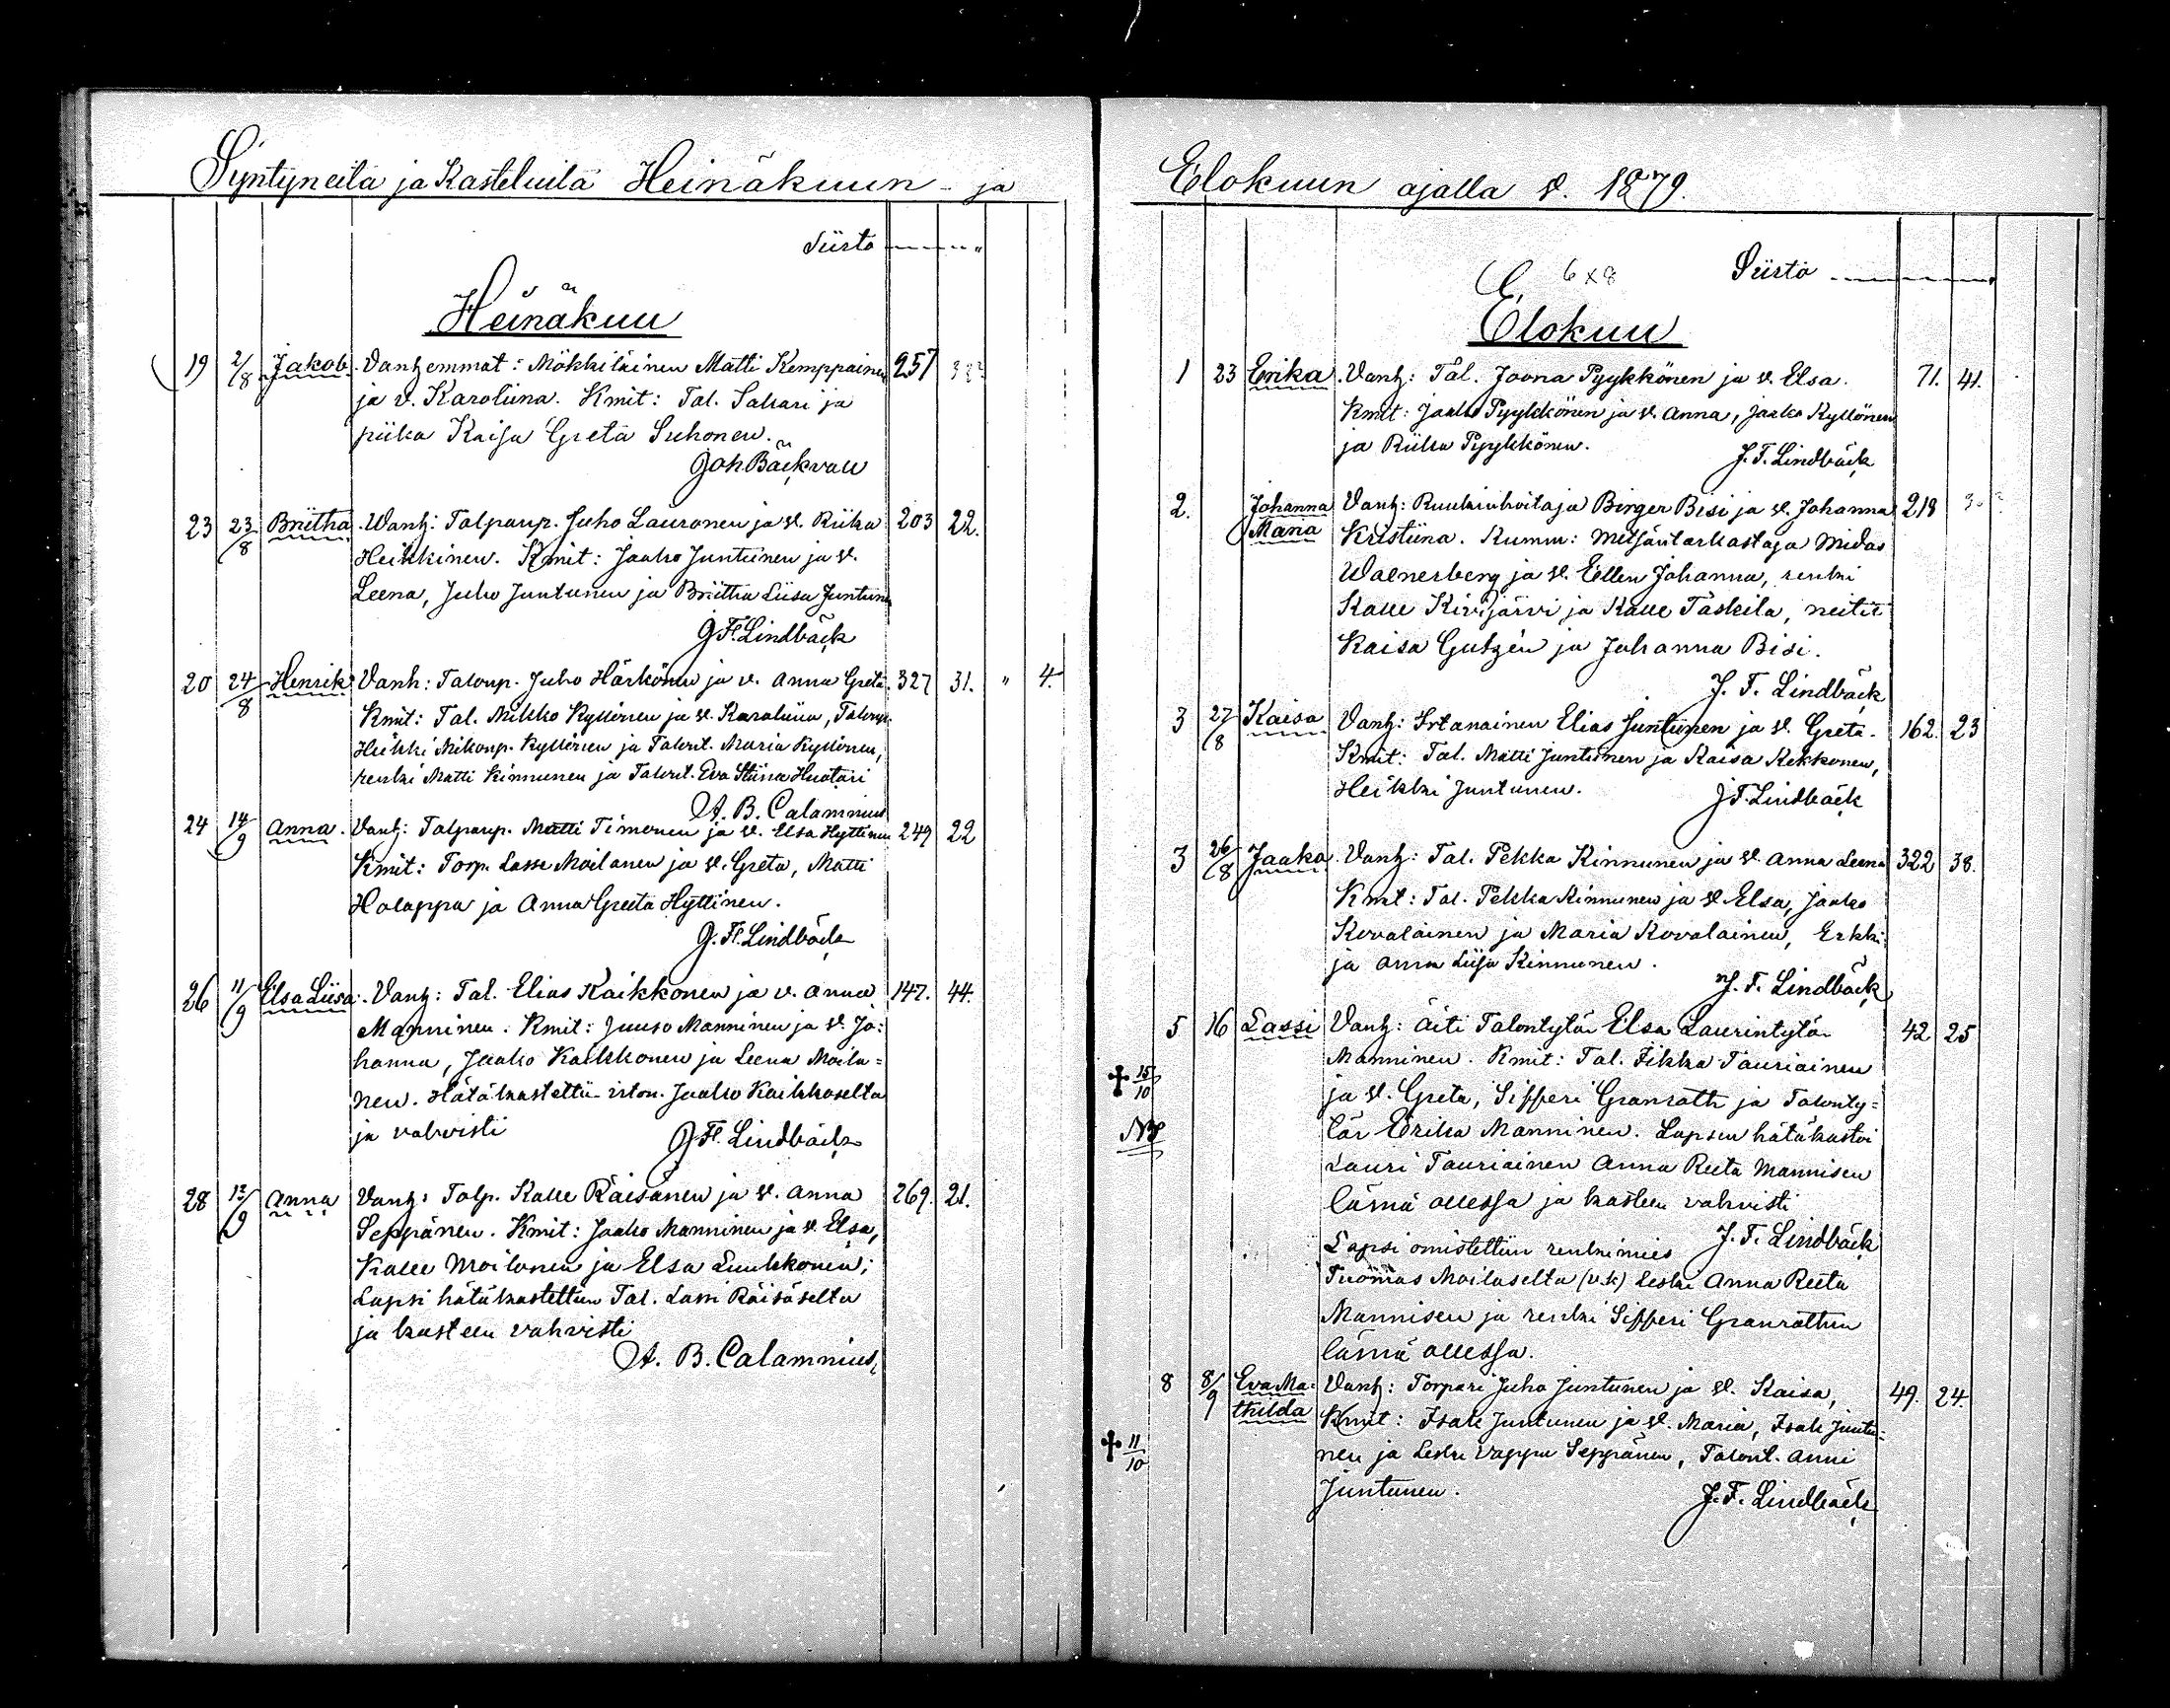 Syntyneitä ja Kasteluita Heinäkuun - ja
Siirto
Heinäkuu
19 2/8 Jakob. Vanhemmat: Mökkiläinen Matti Kemppainen 257
ja v. Karoliina. Kmit: Tal. Sakari ja
piika Kaisa Greta Suhonen.
Joh Bäckvall
23 23/8 Briitha. Vanh: Talpanp. Juho Lauronen ja v. Riika 203 22.
Heikkinen. Kmit: Jaako Juntunen ja v.
Leena, Juho Juntunen ja Briitha Liisa Juntunen
J F. Lindbäck
20 24/8 Henrik Vanh: Taloup. Juho Härkönen ja v. Anna Greta. 327 31. " 4.
Kmit: Tal. Mikko Kyllönen ja v. Karoliina, Talonp.
Heikki Mikonp. Kyllönen ja Talont. Maria Kyllönen,
renki Matti Kinnunen ja Talont. Eva Stiina Huotari
A. B. Calamnius
24 14/9 Anna. Vanh: Talpanp. Matti Timonen ja v. Elsa Hyttinen 249 22
Kmit: Torp. Lasse Moilanen ja v. Greta, Matti
Holappa ja Anna Greeta Hyttinen.
J. F. Lindbäck
26 11/9 Elsa Liisa. Vanh: Tal. Elias Kaikkonen ja v. Anna 147. 44.
Manninen. Kmit: Juuso Manninen ja v. Jo:
hanna, Jaako Kaikkonen ja Leena Moila=
nen. Hätäkastettii itson. Jaako Kaikkoselta
ja vahvisti J F. Lindbäck
28 12/9 Anna Vanh: Talp. Kalle Räisänen ja v. Anna 269. 21.
Seppänen. Kmit: Jaako Manninen ja v. Elsa,
Kalle Moilanen ja Elsa Luukkonen;
Lapsi hätäkastettiin Tal. Lassi Räisäselta
ja kasteen vahvisti
A. B. Calamnius
Elokuun ajalla v. 1879.
6 x 8 Siirto
Elokuu
1 23 Erika. Vanh: Tal. Joona Pyykkönen ja v. Elsa. 71. 41.
Kmit: Jaako Pyykkönen ja v. Anna, Jaako Kyllönen
ja Riika Pyykkönen. J. F. Lindbäck
2. Johanna Vanh: Ruukinhoitaja Birger Bisi ja v. Johanna 218
Maria Kristiina. Kumm: Metsäntarkastaja Midas
Waenerberg ja v. Ellen Johanna, renki
Kalle Kivijärvi ja Kalle Taskila, neitit
Kaisa Gutzén ja Johanna Bisi.
J. F. Lindbäck
3 27/8 Kaisa Vanh: Irtanainen Elias Juntunen ja v. Greta. 162. 23
Kmit: Tal. Matti Juntunen ja Kaisa Kekkonen,
Heikki Juntunen. J F. Lindbäck
3 26/8 Jaako. Vanh: Tal. Pekka Kinnunen ja v. Anna Leena 322 38.
Kmit: Tal. Pekka Kinnunen ja v Elsa, Jaako
Kovalainen ja Maria Kovalainen, Erkki
ja Anna Liisa Kinnunen.
J. F. Lindbäck
5 16 Lassi Vanh: Äiti Talontytär Elsa Laurintytär 42 25
Manninen. Kmit: Tal. Fikka Tauriainen
✝ 15/10 ja v. Greta, Sifferi Granrath ja Talonty=
NB tär Erika Manninen. Lapsen hätäkastoi
Lauri Tauriainen Anna Reeta Mannisen
läsnä ollessa ja kasteen vahvisti
Lapsi omistettiin renkimies J. F. Lindbäck
Tuomas Moilaselta (v.k) Leski Anna Reeta
Mannisen ja renki Sifferi Granrathin
läsnä ollessa.
8 8/9 Eva Ma- Vanh: Torpari Juho Juntunen ja v. Kaisa, 49. 24.
thilda Kmit: Isak Juntunen ja v. Maria, Isak Juntu=
✝ 11/10 nen ja Leski Vappu Seppänen, Talont. Anni
Juntunen. J. F. Lindbäck